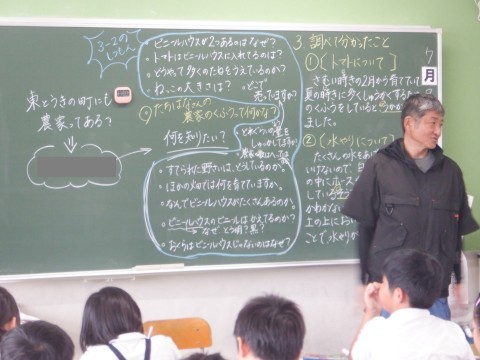 3-2の
しつもん
東とうきの町にも
農家ってある?
・ビニールハウスが2つあるのは?なぜ?
・トマトはビニールハウスに入れてるのは?
・どうやって多くのたねをうえているのか?
・ねっこの大きさは?
・どこで
売ってますか?
◎たちばなさんの
農家のくふうって何かな?
何を知りたい?
・どれくらいの量を
しゅうかくしますか?
・すてられた野さいは、どうしているのか?
・ほかの畑では何を育てていますか。
・なんでビニールハウスがたくさんあるのか。
・ビニールハウスのビニールはかえてるのか?
なぜ、とう明?黒?
・おくらはビニールハウスじゃないのはなぜ?
3.調べて分かったこと
①(トマトについて)
さむい時きの2月から育てて
夏の時きに多くしゅうかくするため
のくふうをしている
②(水やりについて)
たくさんの水をあ
いけないので、
の中にホース
している
かわかない
土の上にお
ことで水やり
月